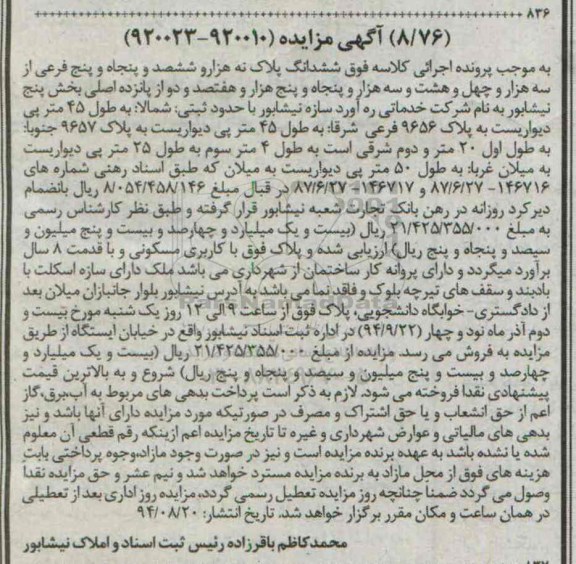 ۸۳۶
(۸/۷۶) آگهی مزایده (۹۲۰۰۱۰-۹۲۰۰۲۳)
به موجب پرونده اجرائی کلاسه فوق ششدانگ پلاک نه هزارو ششصد و پنجاه و پنج فرعی از
سه هزار و چهل و هشت و سه هزار و پنجاه و پنج هزار و هفتصد و دو از پانزده اصلی بخش پنج
نیشابور به نام شرکت خدماتی ره آورد سازه نیشابور با حدود ثبتی: شمالا: به طول ۴۵ متر پی
دیواریست به پلاک ۹۶۵۶ فرعی شرقا: به طول ۴۵ متر پی دیواریست به پلاک ۹۶۵۷ جنوبا:
به طول اول ۲۰ متر و دوم شرقی است به طول ۴ متر سوم به طول ۲۵ متر پی دیواریست
به میلان غربا: به طول ۵۰ متر پی دیواریست به میلان که طبق اسناد رهنی شماره های
۱۴۶۷۱۶- ۸۷/۶/۲۷ و ۱۴۶۷۱۷- ۸۷/۶/۲۷ در قبال مبلغ ۸/۰۵۴/۴۵۸/۱۴۶ ریال بانضمام
دیرکرد روزانه در رهن بانک تجارت شعبه نیشابور قرار گرفته و طبق نظر کارشناس رسمی
به مبلغ ۲۱/۴۲۵/۳۵۵/۰۰۰ ریال (بیست و یک میلیارد و چهارصد و بیست و پنج میلیون و
سیصد و پنجاه و پنج ریال) ارزیابی شده و پلاک فوق با کاربری مسکونی و با قدمت ۸ سال
برآورد میگردد و دارای پروانه کار ساختمان از شهرداری می باشد ملک دارای سازه اسکلت با
بادبند و سقف های تیرچه بلوک و فاقد نما می باشد به آدرس نیشابور بلوار جانبازان میلان بعد
از دادگستری- خوابگاه دانشجویی، پلاک فوق از ساعت ۹ الی ۱۲ روز یک شنبه مورخ بیست و
دوم آذر ماه نود و چهار (۹۴/۹/۲۲) در اداره ثبت اسناد نیشابور واقع در خیابان ایستگاه از طریق
مزایده به فروش می رسد. مزایده از مبلغ ۲۱/۴۲۵/۳۵۵/۰۰۰ ریال (بیست و یک میلیارد و
چهارصد و بیست و پنج میلیون و سیصد و پنجاه و پنج ریال) شروع و به بالاترین قیمت
پیشنهادی نقدا فروخته می شود. لازم به ذکر است پرداخت بدهی های مربوط به آب،برق،گاز
اعم از حق انشعاب و یا حق اشتراک و مصرف در صورتیکه مورد مزایده دارای آنها باشد و نیز
بدهی های مالیاتی و عوارض شهرداری و غیره تا تاریخ مزایده اعم ازینکه رقم قطعی آن معلوم
شده یا نشده باشد به عهده برنده مزایده است و نیز در صورت وجود مازاد،وجوه پرداختی بابت
هزینه های فوق از محل مازاد به برنده مزایده مسترد خواهد شد و نیم عشر و حق مزایده نقدا
وصول می گردد ضمنا چنانچه روز مزایده تعطیل رسمی گردد، مزایده روز اداری بعد از تعطیلی
در همان ساعت و مکان مقرر برگزار خواهد شد. تاریخ انتشار: ۹۴/۰۸/۲۰
محمدکاظم باقرزاده رئیس ثبت اسناد و املاک نیشابور